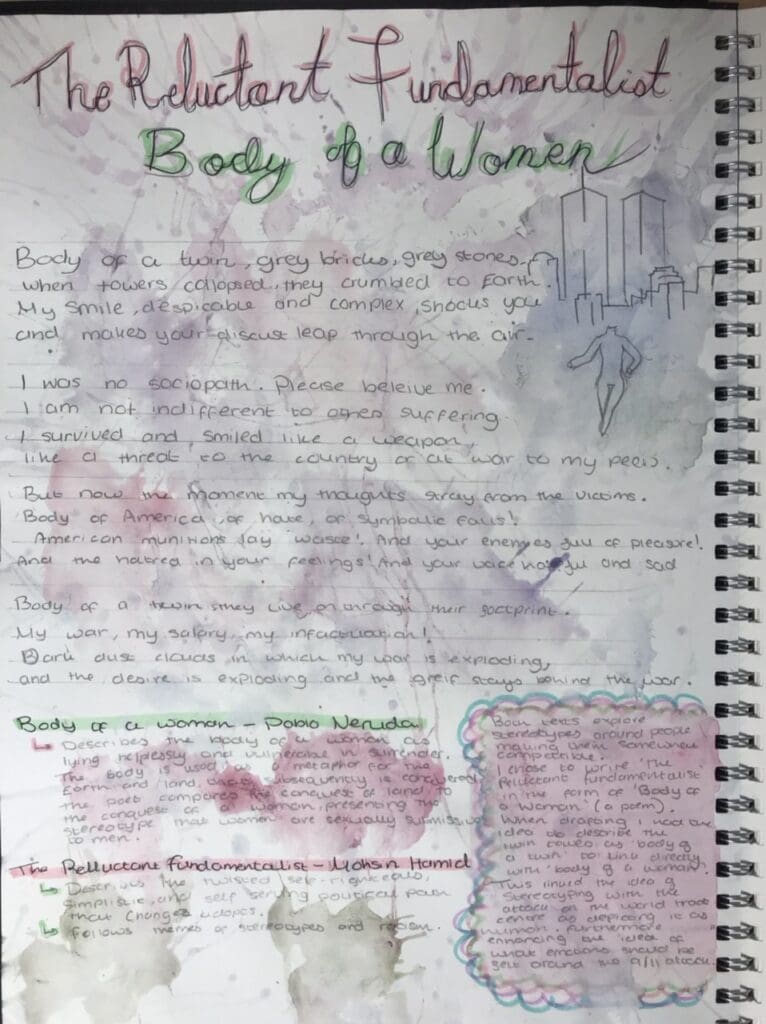 The Reluctant Fundamentalist
Body of a Women
Body of a twin, grey bricks, grey stones,
when towers collopsed, they crumbled to Earth.
My smile, despicable and complex, shocks you
and makes your discust leap through the air.
I was no sociopath. Please beleive me.
I am not indifferent to others suffering.
I survived and smiled like a weapon,
like a threat to the country or at war to my peers.
But now the moment my thoughts stray from the victims.
Body of America, of hate, of symbolic falls!
American munitions lay waste! And your enemies full of pleasure!
And the hatred in your feelings! And your voice hateful and sad
Body of a twin, they live on through their footprint.
My war, my salary, my infactuation!
Dark dust clouds in which my war is exploding,
and the desire is exploding and the greif stays behind the war.
Body of a woman - Pablo Neruda
Describes the body of a woman as
lying helplessly and vulnerable in surrender.
The body is used as metaphor for the
Earth and land, subsequently is conquered
the poet compares the conquest of land to
the conquest of a woman, presenting the
stereotype that women are sexually submissive
to men.
The Relluctant Fundamentalist - Mohsin Hamid
Describes the twisted self-righteous,
simplistic, and self serving political path
that Changez adopts.
Follows themes of stereotypes and racism.
Both texts explore
stereotypes around people
making them somewhat
compatible.
I chose to write 'The
Reluctant Fundamentalist
in the form of 'Body of
a Woman' (a poem).
When drafting I had the
idea to describe the
twin towers as 'body of
a twin' to link directly
with 'body of a woman'.
This linked the idea of
stereotyping with the
attack on the world trade
centre as depicting it as
human. Furthermore
enhancing the idea of
what emotions should be
felt around the 9/11 attack.